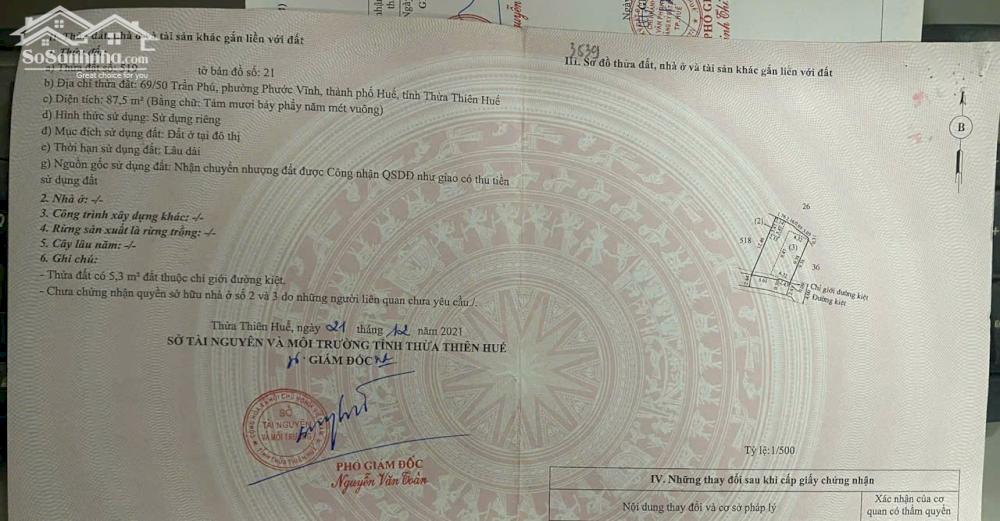 SoSanhnha.com
Great choice for you
1. Thửa đất, nhà ở và tài sản khác gắn liền với đất
1. Thửa đất:
a) Thửa đất số: 519
tờ bản đồ số: 21
b) Địa chỉ thửa đất: 69/50 Trần Phú, phường Phước Vĩnh, thành phố Huế, tỉnh Thừa Thiên Huế
c) Diện tích: 87,5 m² (Bằng chữ: Tám mươi bảy phẩy năm mét vuông)
d) Hình thức sử dụng: Sử dụng riêng
đ) Mục đích sử dụng đất: Đất ở tại đô thị
e) Thời hạn sử dụng đất: Lâu dài
g) Nguồn gốc sử dụng đất: Nhận chuyển nhượng đất được Công nhận QSDĐ như giao có thu tiền
sử dụng đất
2. Nhà ở: -/-
3. Công trình xây dựng khác: -/-
4. Rừng sản xuất là rừng trồng: -/-
5. Cây lâu năm: -/-
6. Ghi chú:
- Thửa đất có 5,3 m² đất thuộc chỉ giới đường kiệt.
- Chưa chứng nhận quyền sở hữu nhà ở số 2 và 3 do những người liên quan chưa yêu cầu./.
Thừa Thiên Huế, ngày 21 tháng 12 năm 2021
SỞ TÀI NGUYÊN VÀ MÔI TRƯỜNG TỈNH THỪA THIÊN HUẾ
GIÁM ĐỐC
SỞ
TÀI NGUYÊN
VÀ MÔI TRƯỜNG
PHÓ GIÁM ĐỐC
Nguyễn Văn Toàn
3539
III. Sơ đồ thửa đất, nhà ở và tài sản khác gắn liền với đất
B
26
(2)
518
(3)
36
Chỉ giới đường kiệt
Đường kiệt
Tỷ lệ: 1/500
IV. Những thay đổi sau khi cấp giấy chứng nhận
Nội dung thay đổi và cơ sở pháp lý
Xác nhận của cơ
quan có thẩm quyền